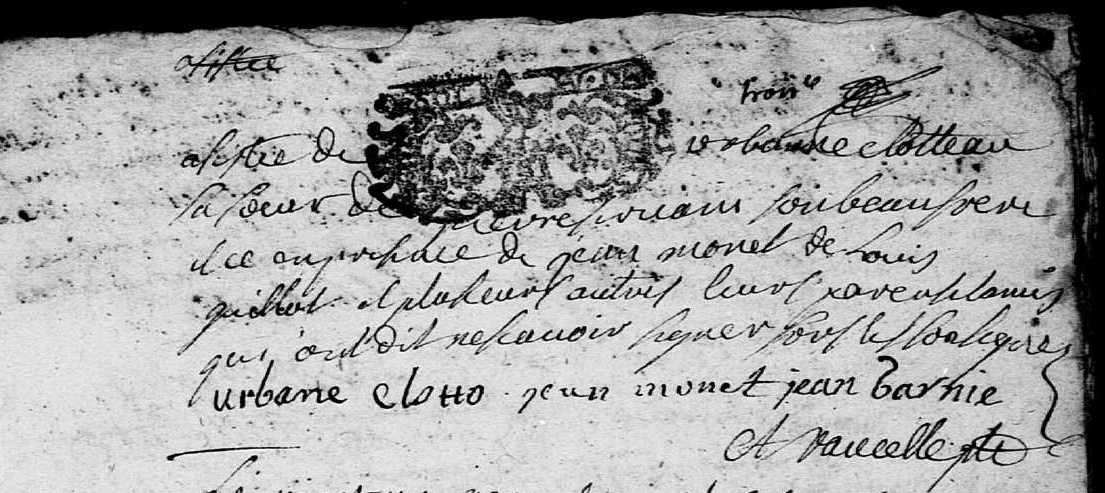 assistée
trois
assistée de urbanne clotteau
sa soeur de pierre sirruain son beau frere
et ce en presence de jean monet de louis
guillot et plusieurs autres leurs parens et amis
qui ont dit ne scavoir signer fors les soubsignes
urbane clotto jean monet jean barnie
A vaucelle ptre